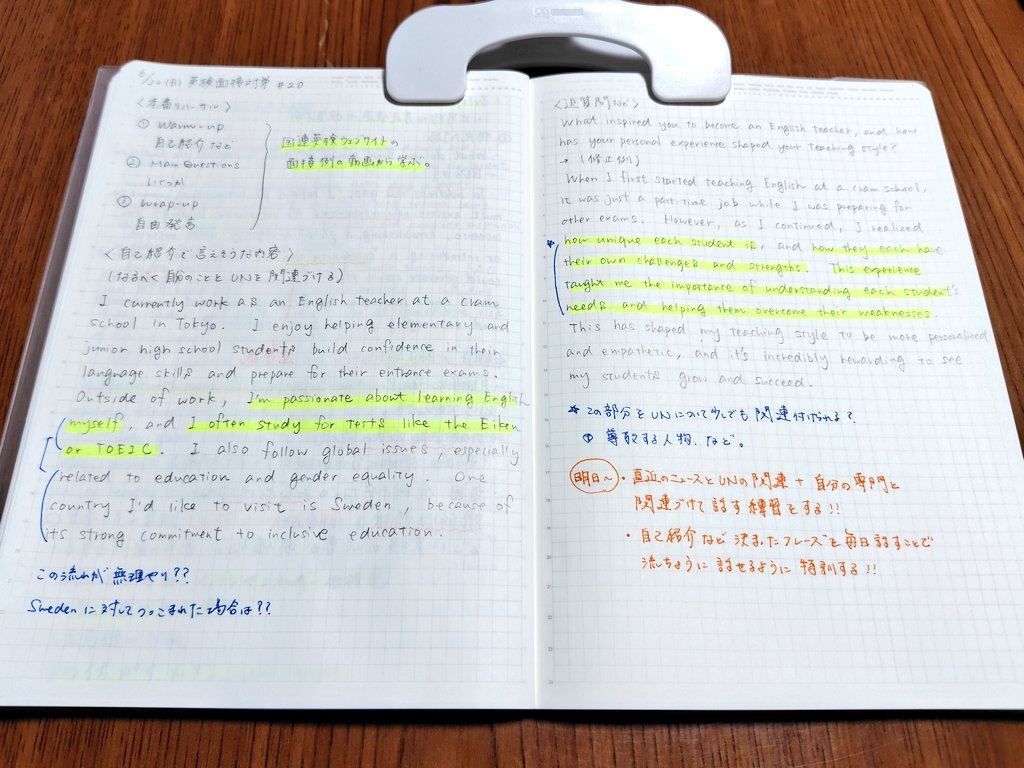 6/22 (日) 英検面接対策 #20
<本番リハーサル>
① Warm-up
自己紹介など
② Main Questions
いくつか
③ Wrap-up
自由発言
国連英検ウェブサイトの
面接例の動画から学ぶ。
<自己紹介で言えそうな内容>
(なるべく自分のこととUNを関連づける)
I currently work as an English teacher at a cram
school in Tokyo. I enjoy helping elementary and
junior high school students build confidence in their
language skills and prepare for their entrance exams.
Outside of work, I'm passionate about learning English
myself, and I often study for tests like the Eiken
or TOEIC. I also follow global issues, especially
related to education and gender equality. One
country I'd like to visit is Sweden, because of
its strong commitment to inclusive education.
この流れが無理やり??
Swedenに対してつっこまれた場合は??
<予算関など>
What inspired you to become an English teacher, and how
has your personal experience shaped your teaching style?
→ (修正例)
When I first started teaching English at a cram school,
it was just a part-time job while I was preparing for
other exams. However, as I continued, I realized
* how unique each student is, and how they each have
their own challenges and strengths. This experience
taught me the importance of understanding each student's
needs and helping them overcome their weaknesses.
This has shaped my teaching style to be more personalized
and empathetic, and it's incredibly rewarding to see
my students grow and succeed.
* この部分とUNについて少しでも関連付けられる?
① 尊敬する人物、など。
明日〜
・直近のニュースとUNの関連+自分の専門と
関連づけて話す練習をする!!
・自己紹介など決まったフレーズを毎日話すことで
流ちょうに話せるように特訓する!!